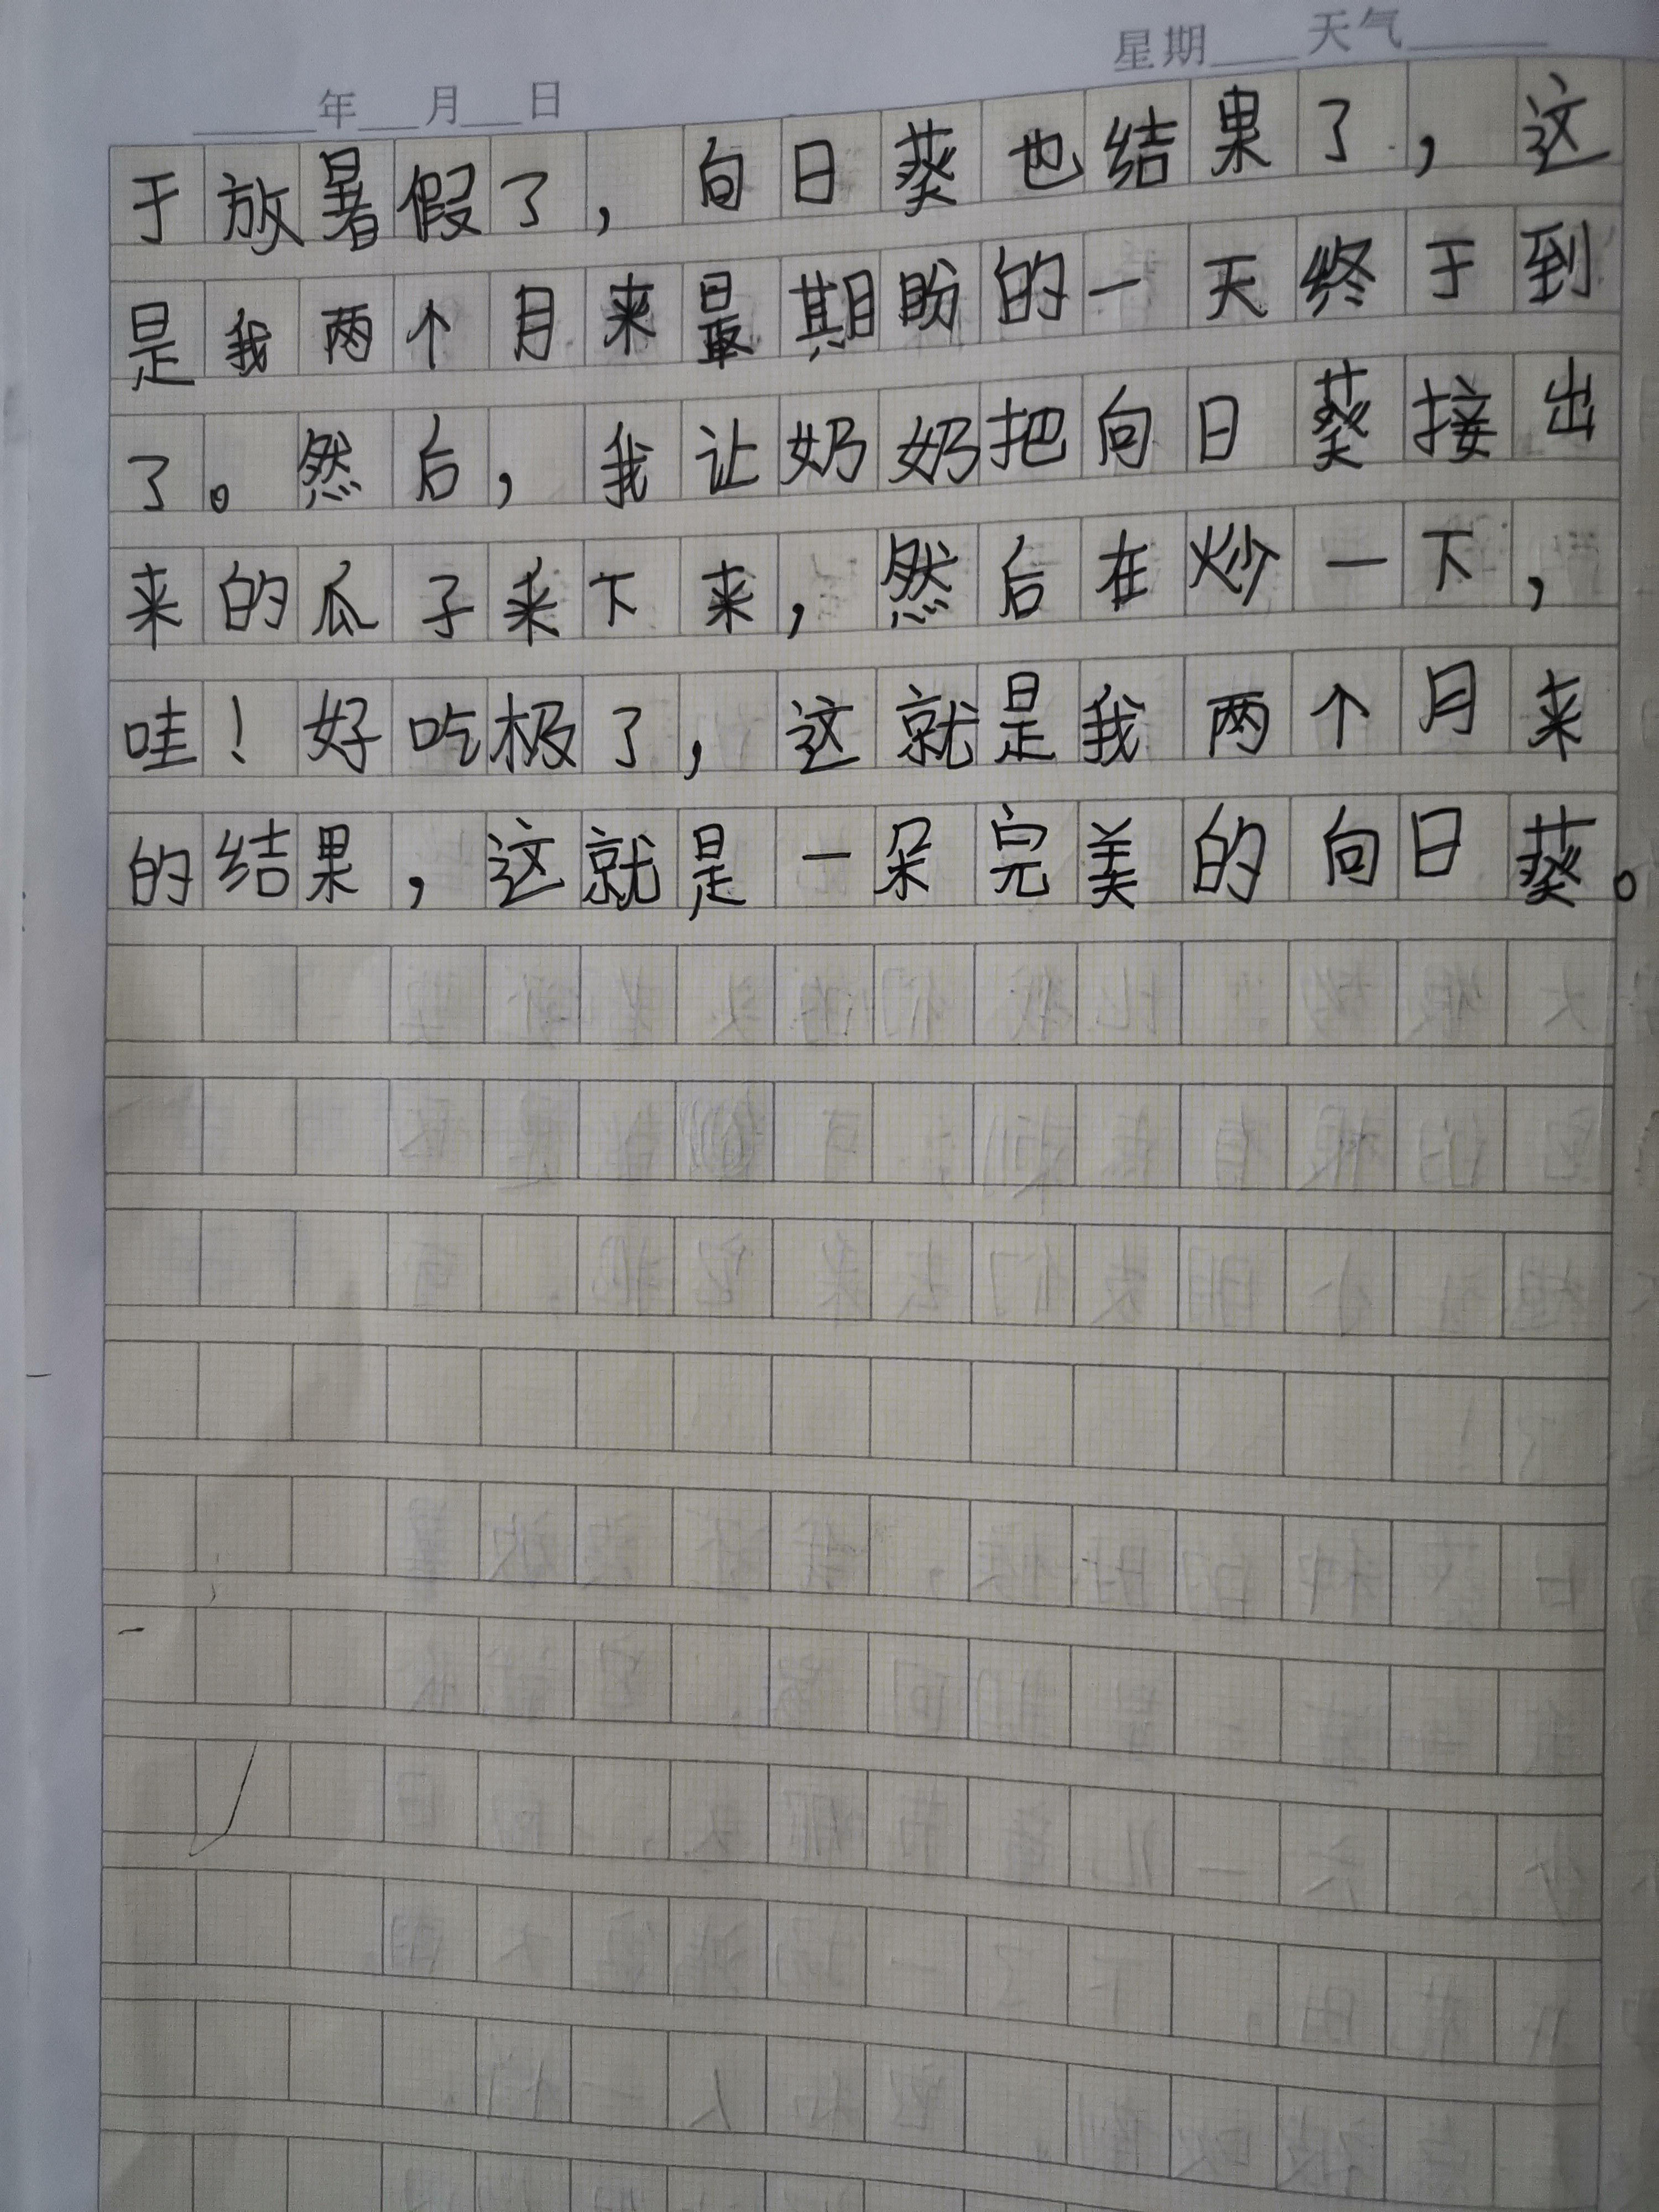 星期____天气____
____年__月__日
于放暑假了，向日葵也结果了，这
是我两个月来最期盼的一天终于到
了。然后，我让奶奶把向日葵接出
来的瓜子采下来，然后在炒一下，
哇！好吃极了，这就是我两个月来
的结果，这就是一朵完美的向日葵。